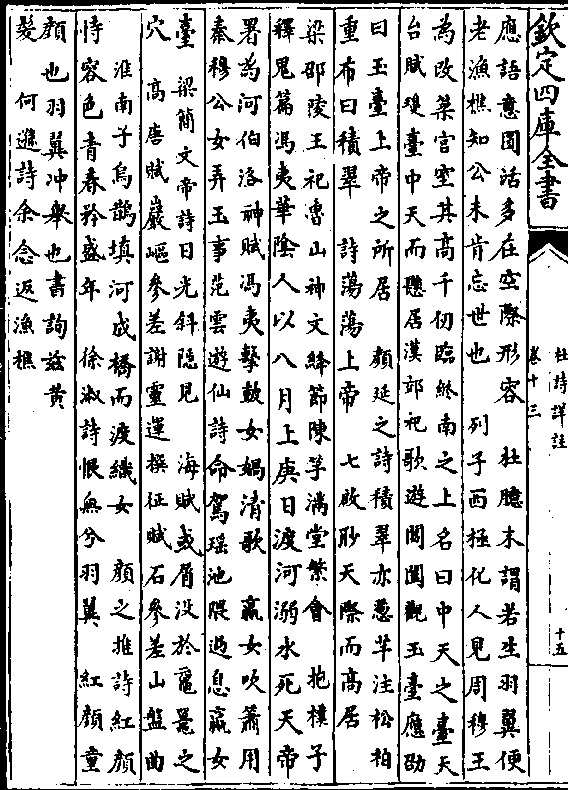 欽定四庫全書
杜詩詳註
卷十三
十五
應語意圓活多在空際形容　杜臆末謂若生羽翼便
老漁樵知公未肯忘世也　列子西極化人見周穆王
為改築宫室其高千仞臨終南之上名曰中天之臺天
台賦瓊臺中天而懸居漢郊祀歌遊閶闔觀玉臺應劭
曰玉臺上帝之所居　顔延之詩積翠亦葱芊注松柏
重布曰積翠　詩蕩蕩上帝　七啟眇天際而高居
梁邵陵王祀魯山神文絳節陳竽滿堂繁會　抱樸子
釋鬼篇馮夷華陰人以八月上庚日渡河溺水死天帝
署為河伯洛神賦馮夷擊鼓女媧清歌　嬴女吹簫用
秦穆公女弄玉事范雲遊仙詩命駕瑶池隈過息嬴女
臺　梁簡文帝詩日光斜隠見　海賦或屑没於黿鼉之
穴　高唐賦巖嶇參差謝靈運撰征賦石參差山盤曲
淮南子烏鵲填河成橋而渡織女　顔之推詩紅顔
恃容色青春矜盛年　徐淑詩恨無兮羽翼　紅顔童
顔也羽翼冲舉也書詢兹黄
髪　何遜詩余念返漁樵